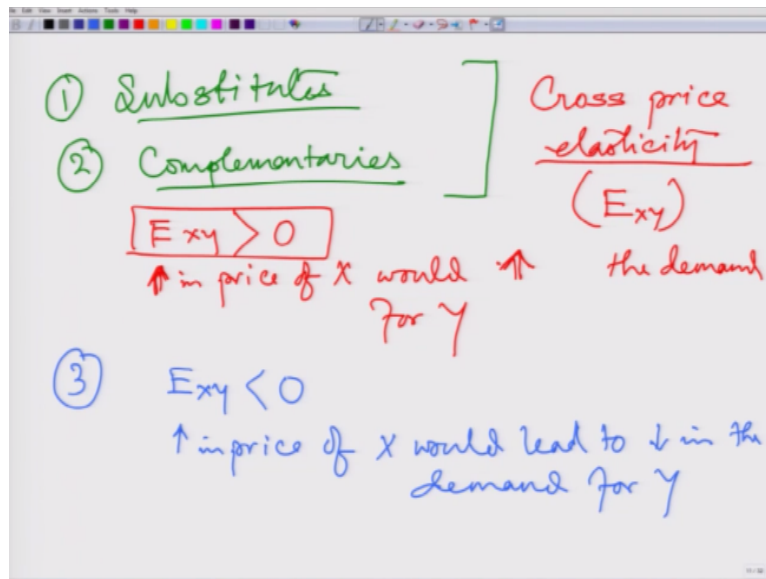 Edit View Insert Actions Tools Help
① Substitutes
② Complementaries
Cross price
elasticity
(Exy)
Exy > 0
↑ in price of X would ↑ the demand
For Y
③ Exy < 0
↑ in price of X would lead to ↓ in the
demand for Y